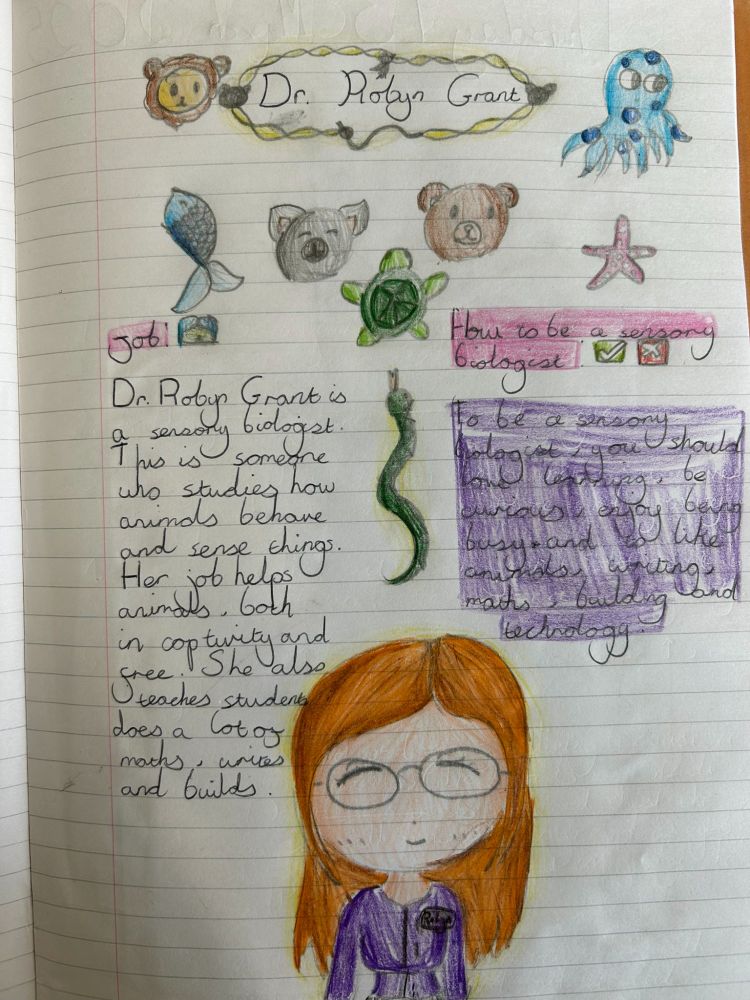 Dr. Robyn Grant
Job!
Dr. Robyn Grant is
a sensory biologist.
This is someone
who studies how
animals behave
and sense things.
Her job helps
animals, both
in captivity and
free. She also
teaches students
does a lot of
maths, writes
and builds.
How to be a sensory
biologist.
To be a sensory
biologist, you should
love learning, be
curious, enjoy being
busy and to like
animals, writing,
maths, building and
technology.
Robyn